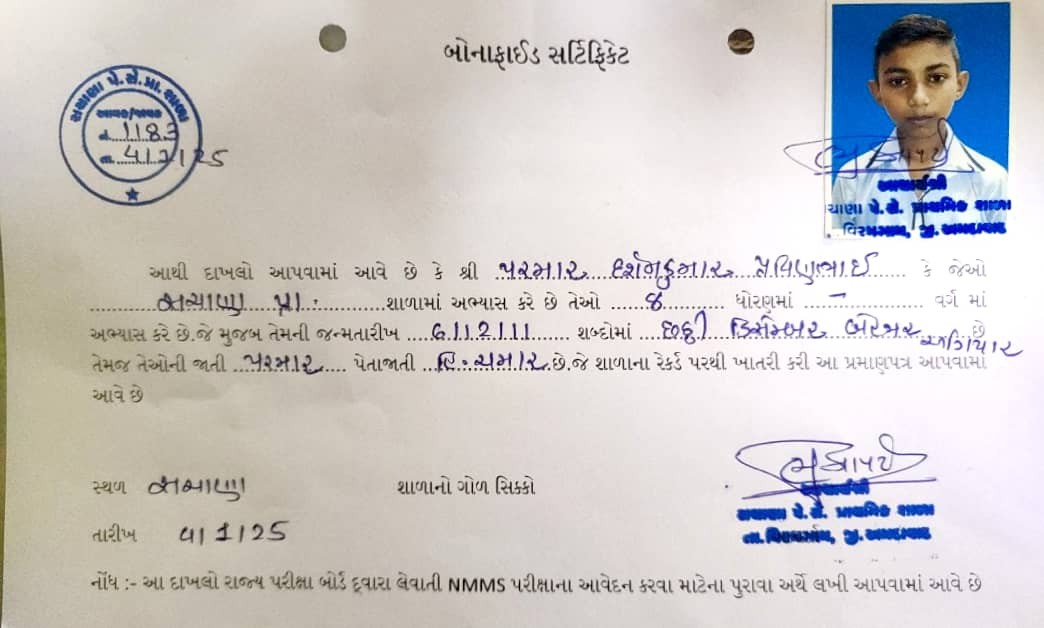 બોનાફાઈડ સર્ટિફિકેટ
સચાણા પે.સે.પ્રા.શાળા
આવક/જાવક
નં.1183
તા.4/1/25
આચાર્યશ્રી
સચાણા પે. સે. પ્રાથમિક શાળા
તા. વિરમગામ, જી. અમદાવાદ
આથી દાખલો આપવામાં આવે છે કે શ્રી પરમાર દર્શનકુમાર પ્રવિણભાઈ કે જેઓ
સચાણા પ્રા. શાળામાં અભ્યાસ કરે છે તેઓ ૪ ધોરણમાં - વર્ગ માં
અભ્યાસ કરે છે.જે મુજબ તેમની જન્મતારીખ 6/12/11 શબ્દોમાં છઠ્ઠી ડિસેમ્બર બે હજાર અગિયાર છે
તેમજ તેઓની જાતી પરમાર પેતાજાતી હિ.ચમાર છે.જે શાળાના રેકર્ડ પરથી ખાતરી કરી આ પ્રમાણપત્ર આપવામાં
આવે છે
સ્થળ સચાણા શાળાનો ગોળ સિક્કો
આચાર્યશ્રી
સચાણા પે. સે. પ્રાથમિક શાળા
તારીખ 4/1/25
તા. વિરમગામ, જી. અમદાવાદ
નોંધ :- આ દાખલો રાજ્ય પરીક્ષા બોર્ડ દ્વારા લેવાતી NMMS પરીક્ષાના આવેદન કરવા માટેના પુરાવા અર્થે લખી આપવામાં આવે છે